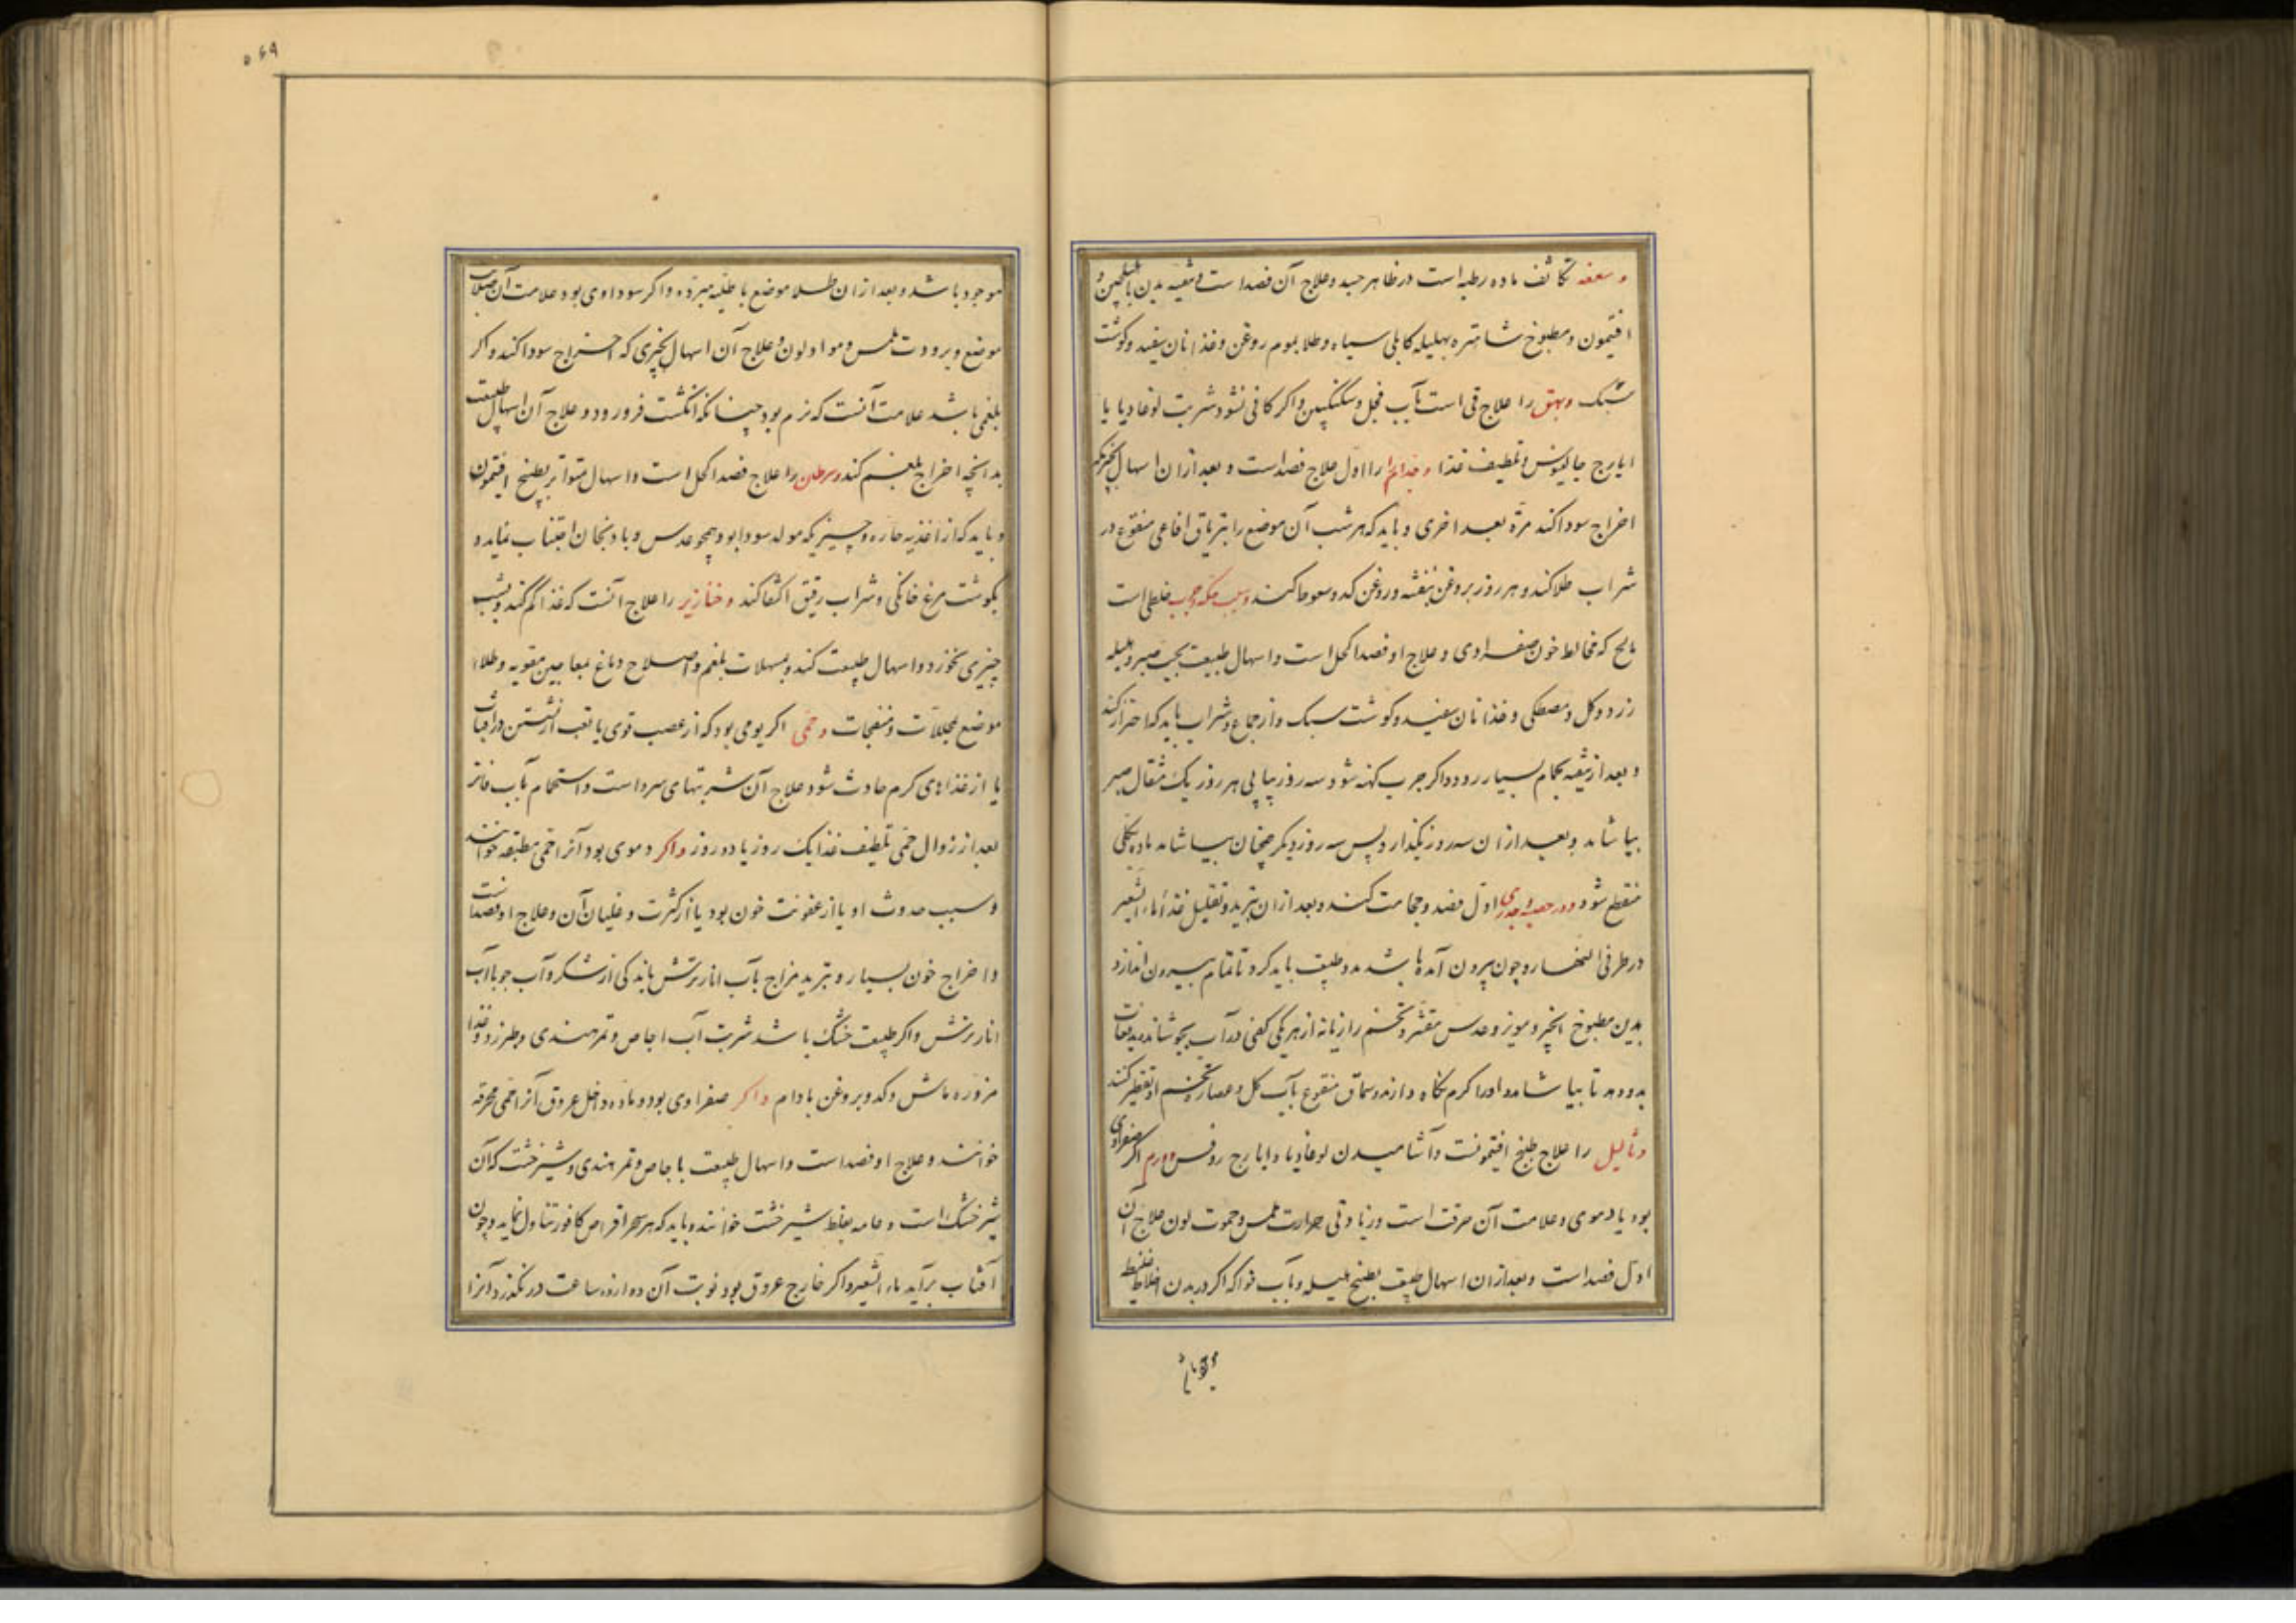 و سعفه تکاثف ماده رطبه است در ظاهر جسد و علاج آن فصد است و تنقیه بدن
افتیمون و مطبوخ شاهتره بهلیله کابلی سیاه و طلا بموم روغن و غذا نان سفید و کوشت
سبک و بهق را علاج قی است بآب فجل و سکنجبین و اکر کافی نشود شربت لوغاذیا یا
ایارج جالینوس و تلطیف غذا و جذام را اول علاج فصد است و بعد ازان اسهال بچیزیکه
اخراج سودا کند مرّة بعد اخری و باید که هر شب آن موضع را بتریاق افاعی منقوع در
شراب طلا کند و هر روز بروغن بنفشه و روغن کدو سعوط کنند و سبب حکه و جرب خلطی است
مالح که مخالط خون صفراوی و علاج او فصد اکحل است و اسهال طبیعت بحب صبر و هلیله
زرد و کل و مصطکی و غذا نان سفید و کوشت سبک و از جماع و شراب باید که احتراز کند
و بعد از تنقیه بحمام بسیار رود و اکر جرب کهنه شود سه روز پیاپی هر روز یک مثقال صبر
بیاشامد و بعد ازان سه روز بکذارد پس سه روز دیکر همچنان بیاشامد ماده بکلی
منقطع شود و در حصبه و جدری اول فصد و حجامت کنند و بعد ازان تبرید و تقلیل غذا ماء الشعیر
در طرفی النهار و چون بیرون آمده باشد مدد طبیعت باید کرد تا تمام بیرون اندازد
بدین مطبوخ انجیر و مویز و عدس مقشر و تخم رازیانه از هر یکی کفی در آب بجوشانند
بدو دهند تا بیاشامد و او را کرم نکاه دارند و سماق منقوع بآب کل و عصاره تخم او تقطیر کنند
و ثالیل را علاج طبخ افتیمونست و آشامیدن لوغاذیا و ایارج روفس و ورم اکر صفراوی
بود یا دموی و علامت آن حرقت است و زیادتی حرارت ملمس و حموت لون علاج آن
اول فصد است و بعد ازان اسهال طبیعت بطبخ هلیله و بآب فواکه اکر در بدن اخلاط غلیظ
موجود باشد
۵۶۹
موجود باشد و بعد ازان طلا موضع باطلیه مبرده و اکر سوداوی بود علامت آن صلابت
موضع و برودت ملمس و سواد لون و علاج آن اسهال بچیزی که استخراج سودا کند و اکر
بلغمی باشد علامت آنست که نرم بود چنانکه انکشت فرو رود و علاج آن اسهال طبیعت
بدانچه اخراج بلغم کند و سرطان را علاج فصد اکحل است و اسهال متواتر بطبخ افتیمون
و باید که از اغذیه حاره و چیزیکه مولد سودا بود همچو عدس و بادنجان اجتناب نماید و
بکوشت مرغ خانکی و شراب رقیق اکتفا کند و خنازیر را علاج آنست که غذا کم کند و بشب
چیزی نخورد و اسهال طبیعت کند بمسهلات بلغم و اصلاح دماغ بمعاجین مقویه و طلاء
موضع بمحللات و منضجات و حمی اکر یومی بود که از غضب قوی یا تعب از نشستن در آفتاب
یا از غذاهای کرم حادث شود علاج آن شربتهای سرد است و استحمام بآب فاتر
بعد از زوال حمی تلطیف غذا یک روز یا دو روز و اکر دموی بود آنرا حمی مطبقه خوانند
و سبب حدوث او یا از عفونت خون بود یا از کثرت و غلیان آن و علاج او فصد است
و اخراج خون بسیار و تبرید مزاج بآب انار ترش باندکی از شکر و آب جو با آب
انار ترش و اکر طبیعت خشک باشد شربت آب اجاص و تمر هندی و طبرزد و غذا
مزوره ماش و کدو بروغن بادام و اکر صفراوی بود و ماده داخل عروق آنرا حمی محرقه
خوانند و علاج او فصد است و اسهال طبیعت باجاص و تمر هندی و شیرخشت که آن
شیر خشک است و عامه بغلط شیرخشت خوانند و باید که هر سحر اقراص کافور تناول نماید و چون
آفتاب برآید ماء الشعیر و اکر خارج عروق بود نوبت آن دوازده ساعت در نکذرد آنرا